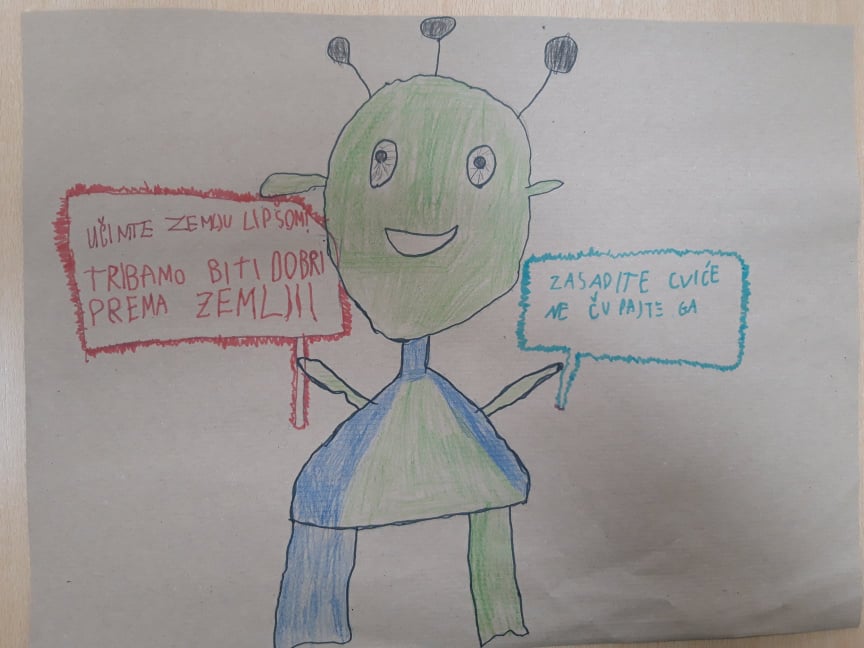 UČINTE ZEMLJU LIPŠOM!
TRIBAMO BITI DOBRI
PREMA ZEMLJI!
ZASADITE CVIĆE
NE ČUPAJTE GA